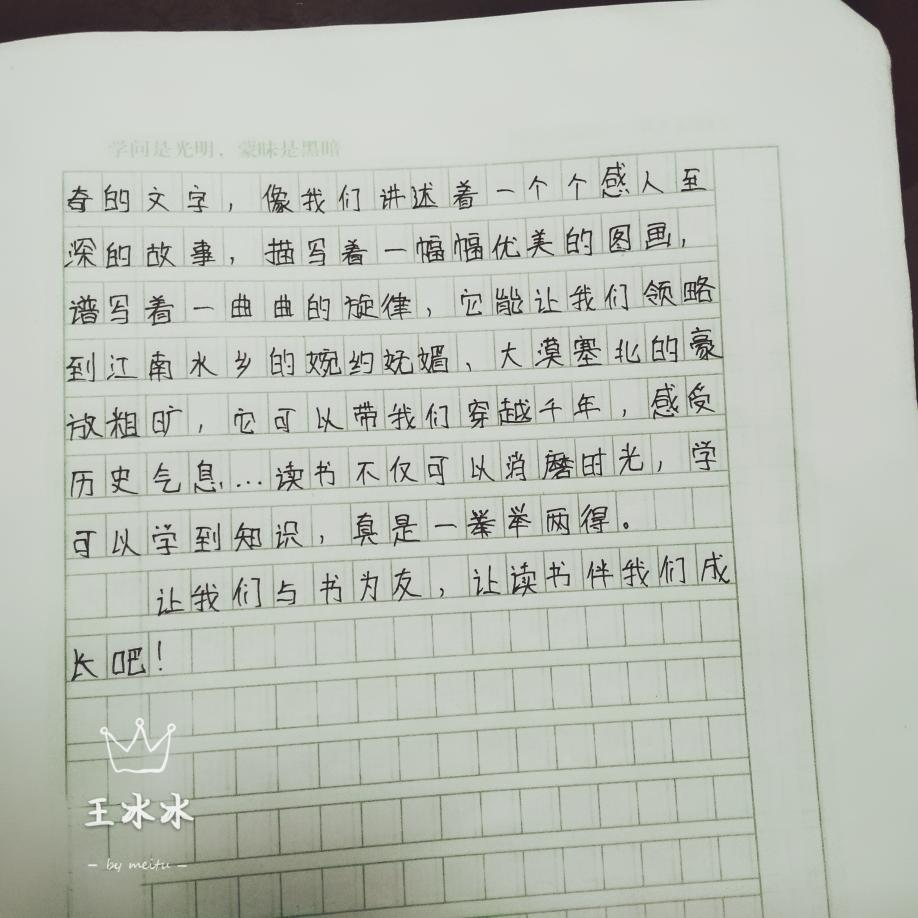 学问是光明，蒙昧是黑暗
奇的文字，像我们讲述着一个个感人至
深的故事，描写着一幅幅优美的图画，
谱写着一曲曲的旋律，它能让我们领略
到江南水乡的婉约妩媚、大漠塞北的豪
放粗旷，它可以带我们穿越千年，感受
历史气息…读书不仅可以消磨时光，学
可以学到知识，真是一举举两得。
让我们与书为友，让读书伴我们成
长吧！
王冰冰
- by meitu -